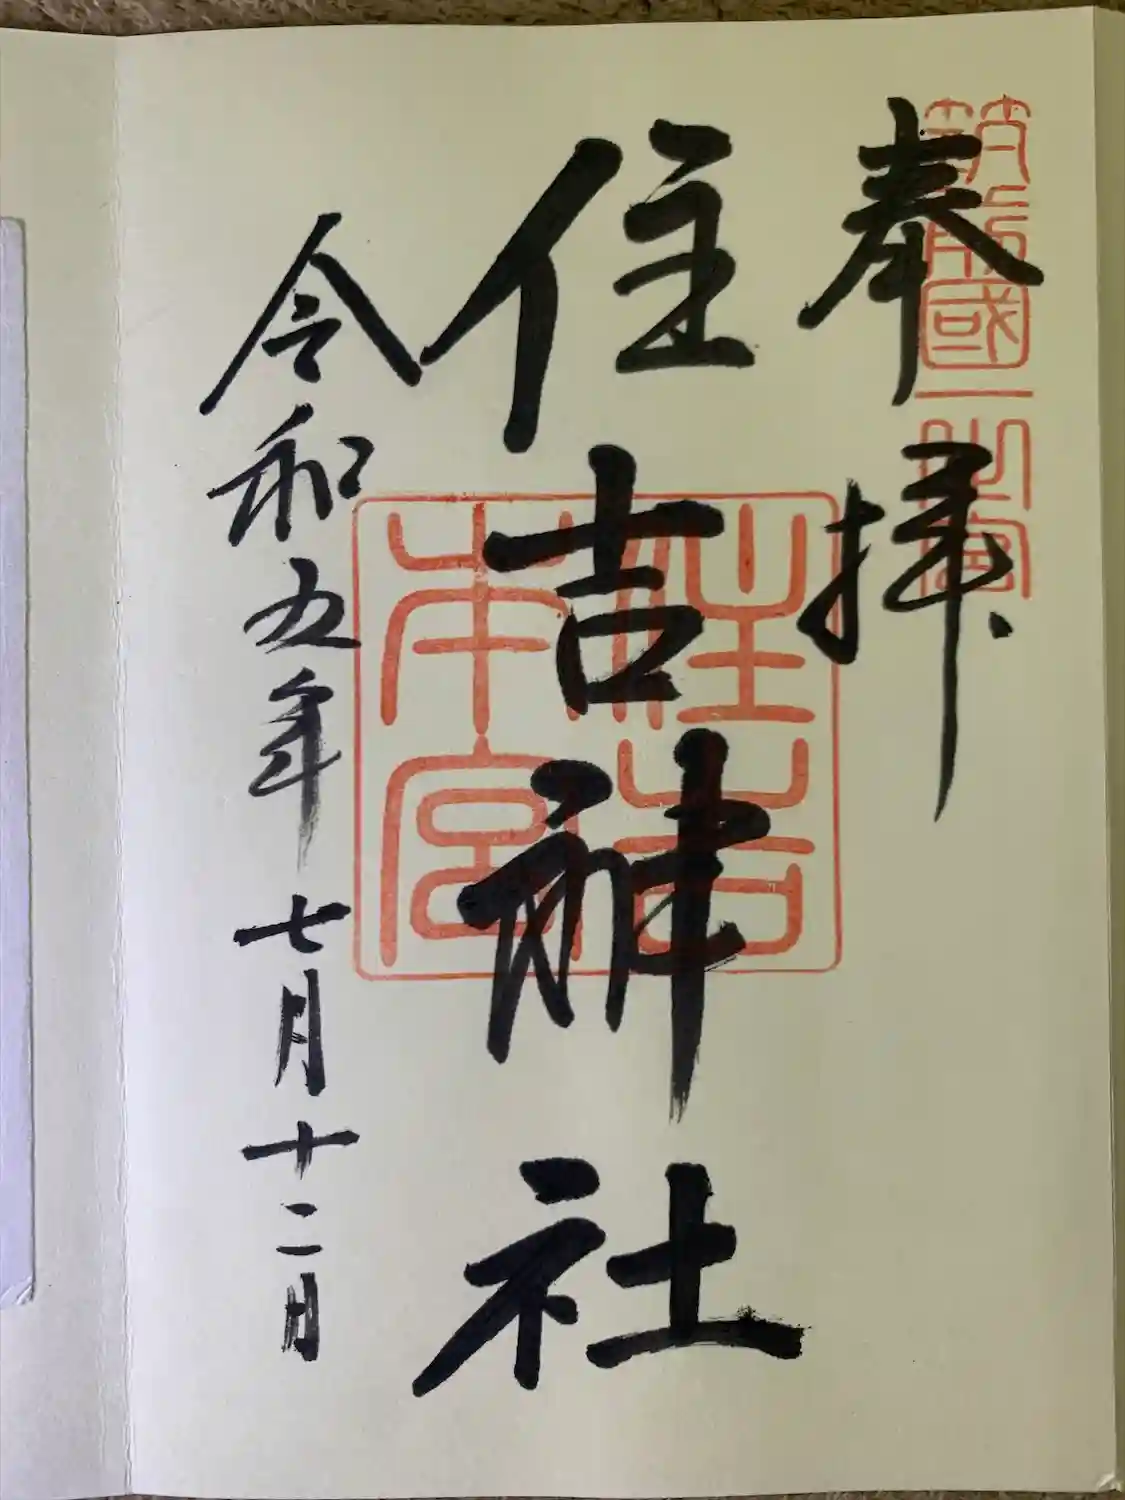 奉拝
筑前國一之宮
住吉神社
住吉
本宮
令和五年七月十二日